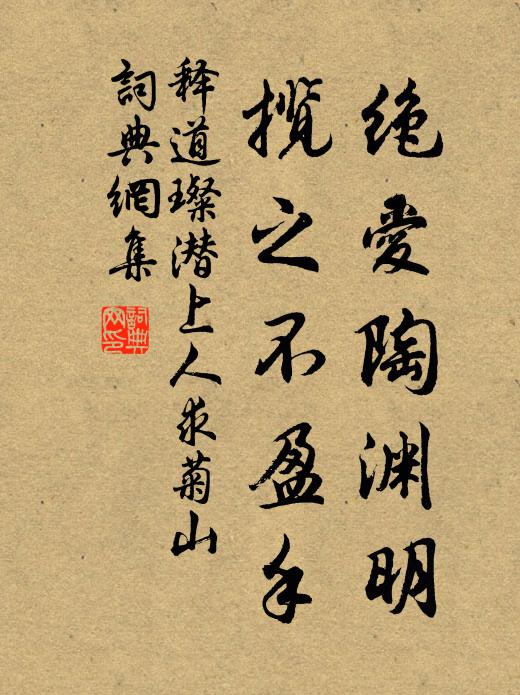 绝爱陶渊明
揽之不盈手
释道璨潜上人求菊山
詞典網集
詞典網印